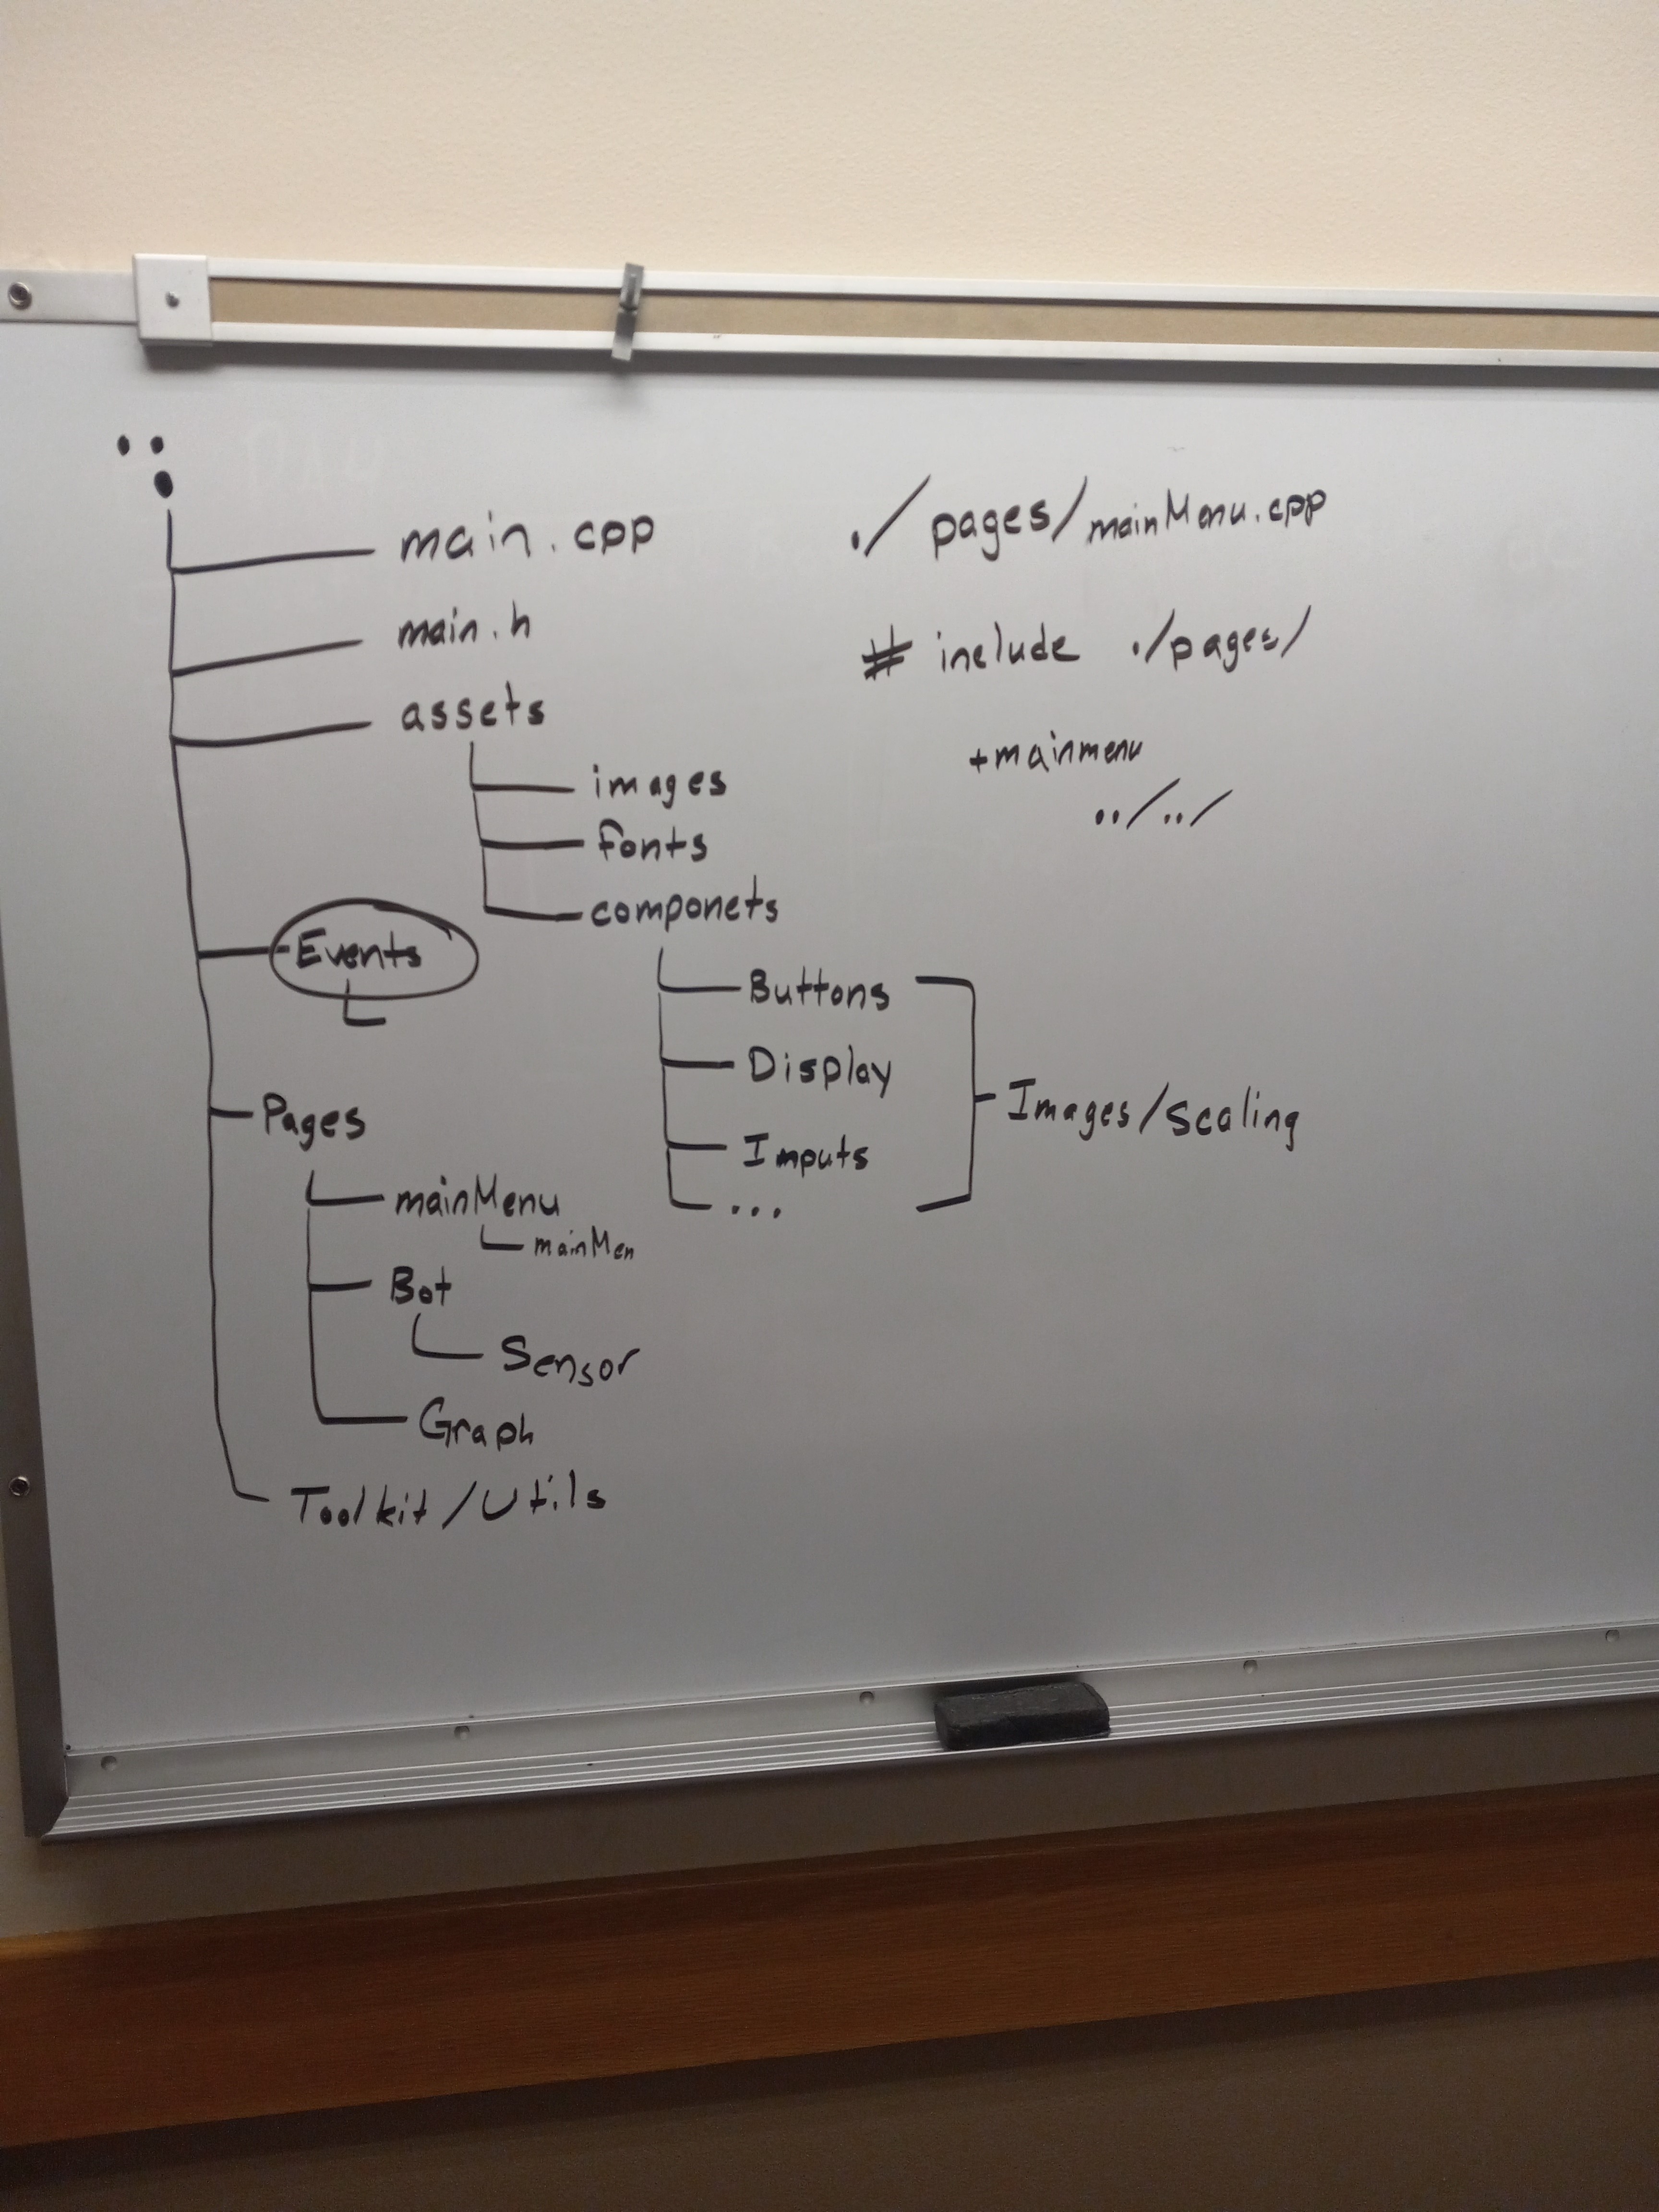 ..
.
main.cpp
main.h
assets
images
fonts
componets
Events
Buttons
Display
Imputs
...
Images/scaling
Pages
mainMenu
mainMen
Bot
Sensor
Graph
Toolkit/Utils
./pages/mainMenu.cpp
# include ./pages/
+mainmenu
../../